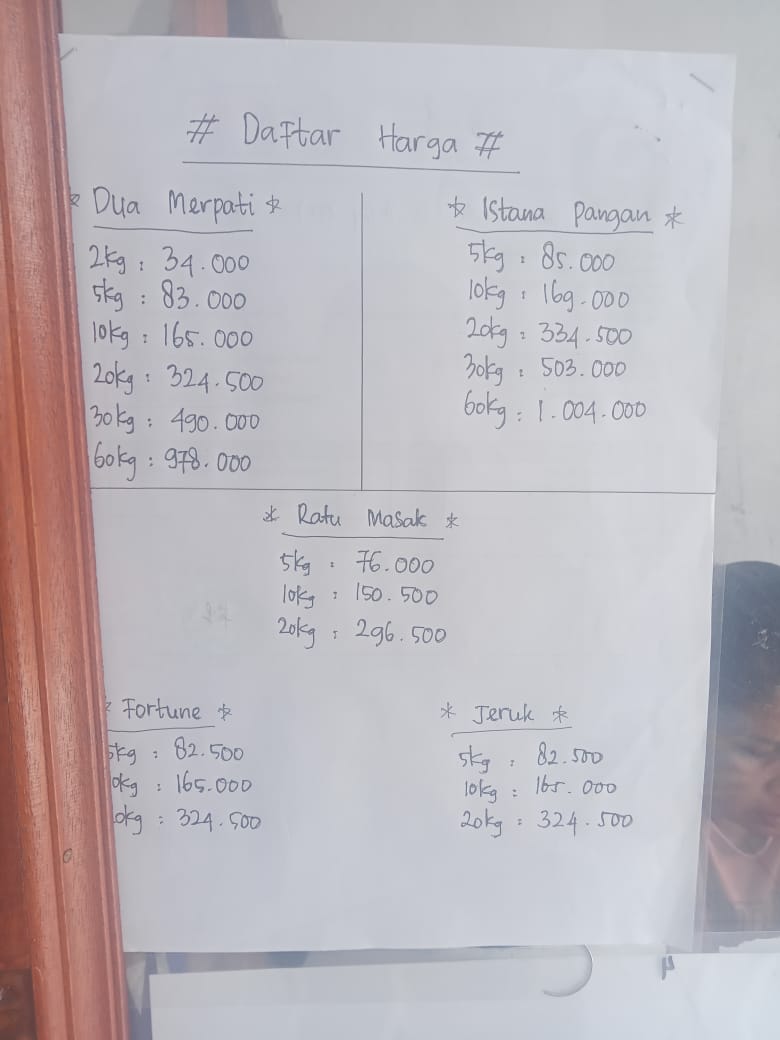 # Daftar Harga #
* Dua Merpati *
2kg : 34.000
5kg : 83.000
10kg : 165.000
20kg : 324.500
30kg : 490.000
60kg : 978.000
* Istana Pangan *
5kg : 85.000
10kg : 169.000
20kg : 334.500
30kg : 503.000
60kg : 1.004.000
* Ratu Masak *
5kg : 76.000
10kg : 150.500
20kg : 296.500
* Fortune *
5kg : 82.500
0kg : 165.000
0kg : 324.500
* Jeruk *
5kg : 82.500
10kg : 165.000
20kg : 324.500